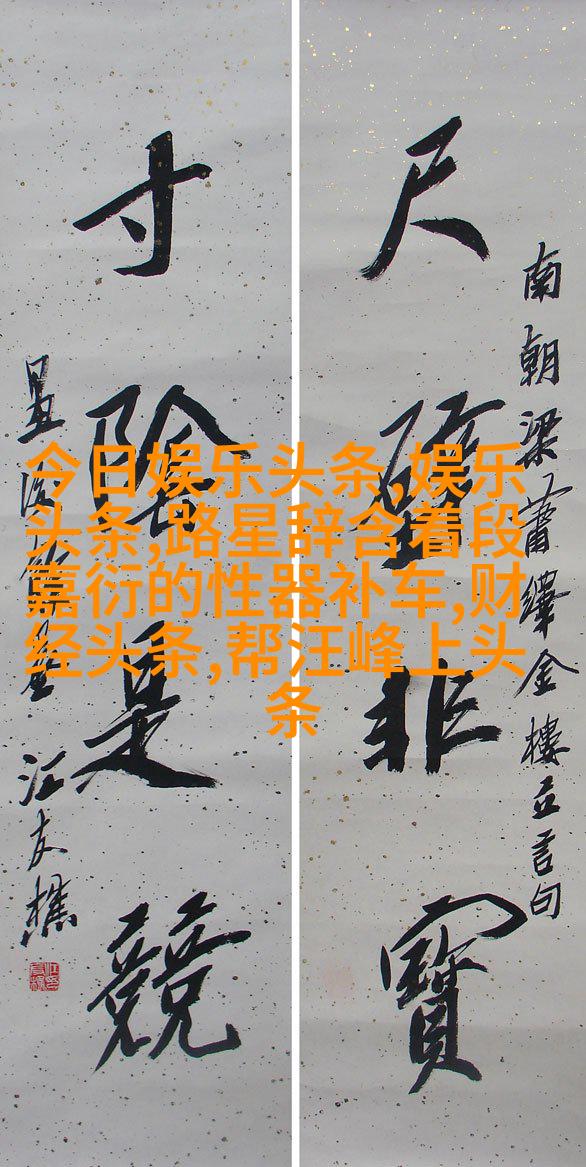 尺璧非寶
南朝梁蕭繹金樓立言句
寸陰是競
汪友樵
今日娱乐头条,娱乐
头条,路星辞含着段
嘉衍的性器补车,财
经头条,帮汪峰上头
条